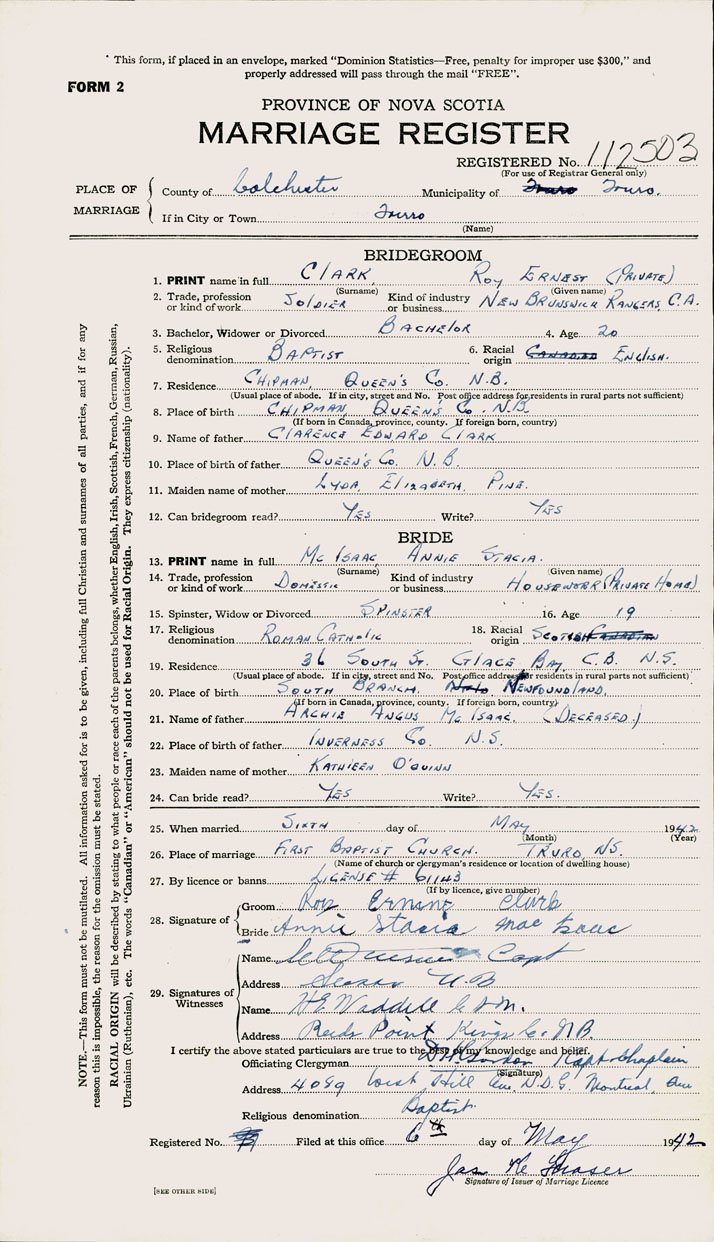 * This form, if placed in an envelope, marked "Dominion Statistics—Free, penalty for improper use $300," and
properly addressed will pass through the mail "FREE".
FORM 2
PROVINCE OF NOVA SCOTIA
MARRIAGE REGISTER
REGISTERED No. 112503
(For use of Registrar General only)
PLACE OF MARRIAGE
County of Colchester Municipality of Truro.
If in City or Town Truro
(Name)
BRIDEGROOM
1. PRINT name in full CLARK, ROY ERNEST (PRIVATE)
(Surname) (Given name)
2. Trade, profession or kind of work SOLDIER Kind of industry or business NEW BRUNSWICK RANGERS, C.A.
3. Bachelor, Widower or Divorced BACHELOR 4. Age 20
5. Religious denomination BAPTIST 6. Racial origin CANADIAN ENGLISH.
7. Residence CHIPMAN, QUEEN'S CO. N.B.
(Usual place of abode. If in city, street and No. Post office address for residents in rural parts not sufficient)
8. Place of birth CHIPMAN, QUEEN'S CO. N.B.
(If born in Canada, province, county. If foreign born, country)
9. Name of father CLARENCE EDWARD CLARK
10. Place of birth of father QUEEN'S CO. N.B.
11. Maiden name of mother LYDA, ELIZABETH. PINE.
12. Can bridegroom read? YES Write? YES
BRIDE
13. PRINT name in full MC ISAAC, ANNIE STACIA.
(Surname) (Given name)
14. Trade, profession or kind of work DOMESTIC Kind of industry or business HOUSEWORK (PRIVATE HOME)
15. Spinster, Widow or Divorced SPINSTER 16. Age 19
17. Religious denomination ROMAN CATHOLIC 18. Racial origin SCOTISH CANADIAN
19. Residence 36 SOUTH ST. GLACE BAY, C.B. N.S.
(Usual place of abode. If in city, street and No. Post office address for residents in rural parts not sufficient)
20. Place of birth SOUTH BRANCH. NEWFOUNDLAND.
(If born in Canada, province, county. If foreign born, country)
21. Name of father ARCHIE ANGUS MC ISAAC. (DECEASED.)
22. Place of birth of father INVERNESS CO. N.S.
23. Maiden name of mother KATHLEEN O'QUINN
24. Can bride read? YES Write? YES.
25. When married SIXTH day of MAY 1942
(Month) (Year)
26. Place of marriage FIRST BAPTIST CHURCH. TRURO, NS.
(Name of church or clergyman's residence or location of dwelling house)
27. By licence or banns LICENSE # 61143
(If by licence, give number)
28. Signature of
Groom Roy Clark
Bride Annie Stacia Mac Isaac
29. Signatures of Witnesses
Name Capt
Address N.B
Name H E Waddell
Address Reids Point Kings Co. N.B.
I certify the above stated particulars are true to the best of my knowledge and belief.
Officiating Clergyman Capt. Chaplain
(Signature)
Address 4089 West Hill Ave, N.D.G. Montreal, Que
Religious denomination Baptist
Registered No. Filed at this office 6th day of May 1942
Jas Fraser
Signature of Issuer of Marriage Licence
[SEE OTHER SIDE]
NOTE.—This form must not be mutilated. All information asked for is to be given, including full Christian and surnames of all parties, and if for any
reason this is impossible, the reason for the omission must be stated.
RACIAL ORIGIN will be described by stating to what people or race each of the parents belongs, whether English, Irish, Scottish, French, German, Russian,
Ukrainian (Ruthenian), etc. The words "Canadian" or "American" should not be used for Racial Origin. They express citizenship (nationality).